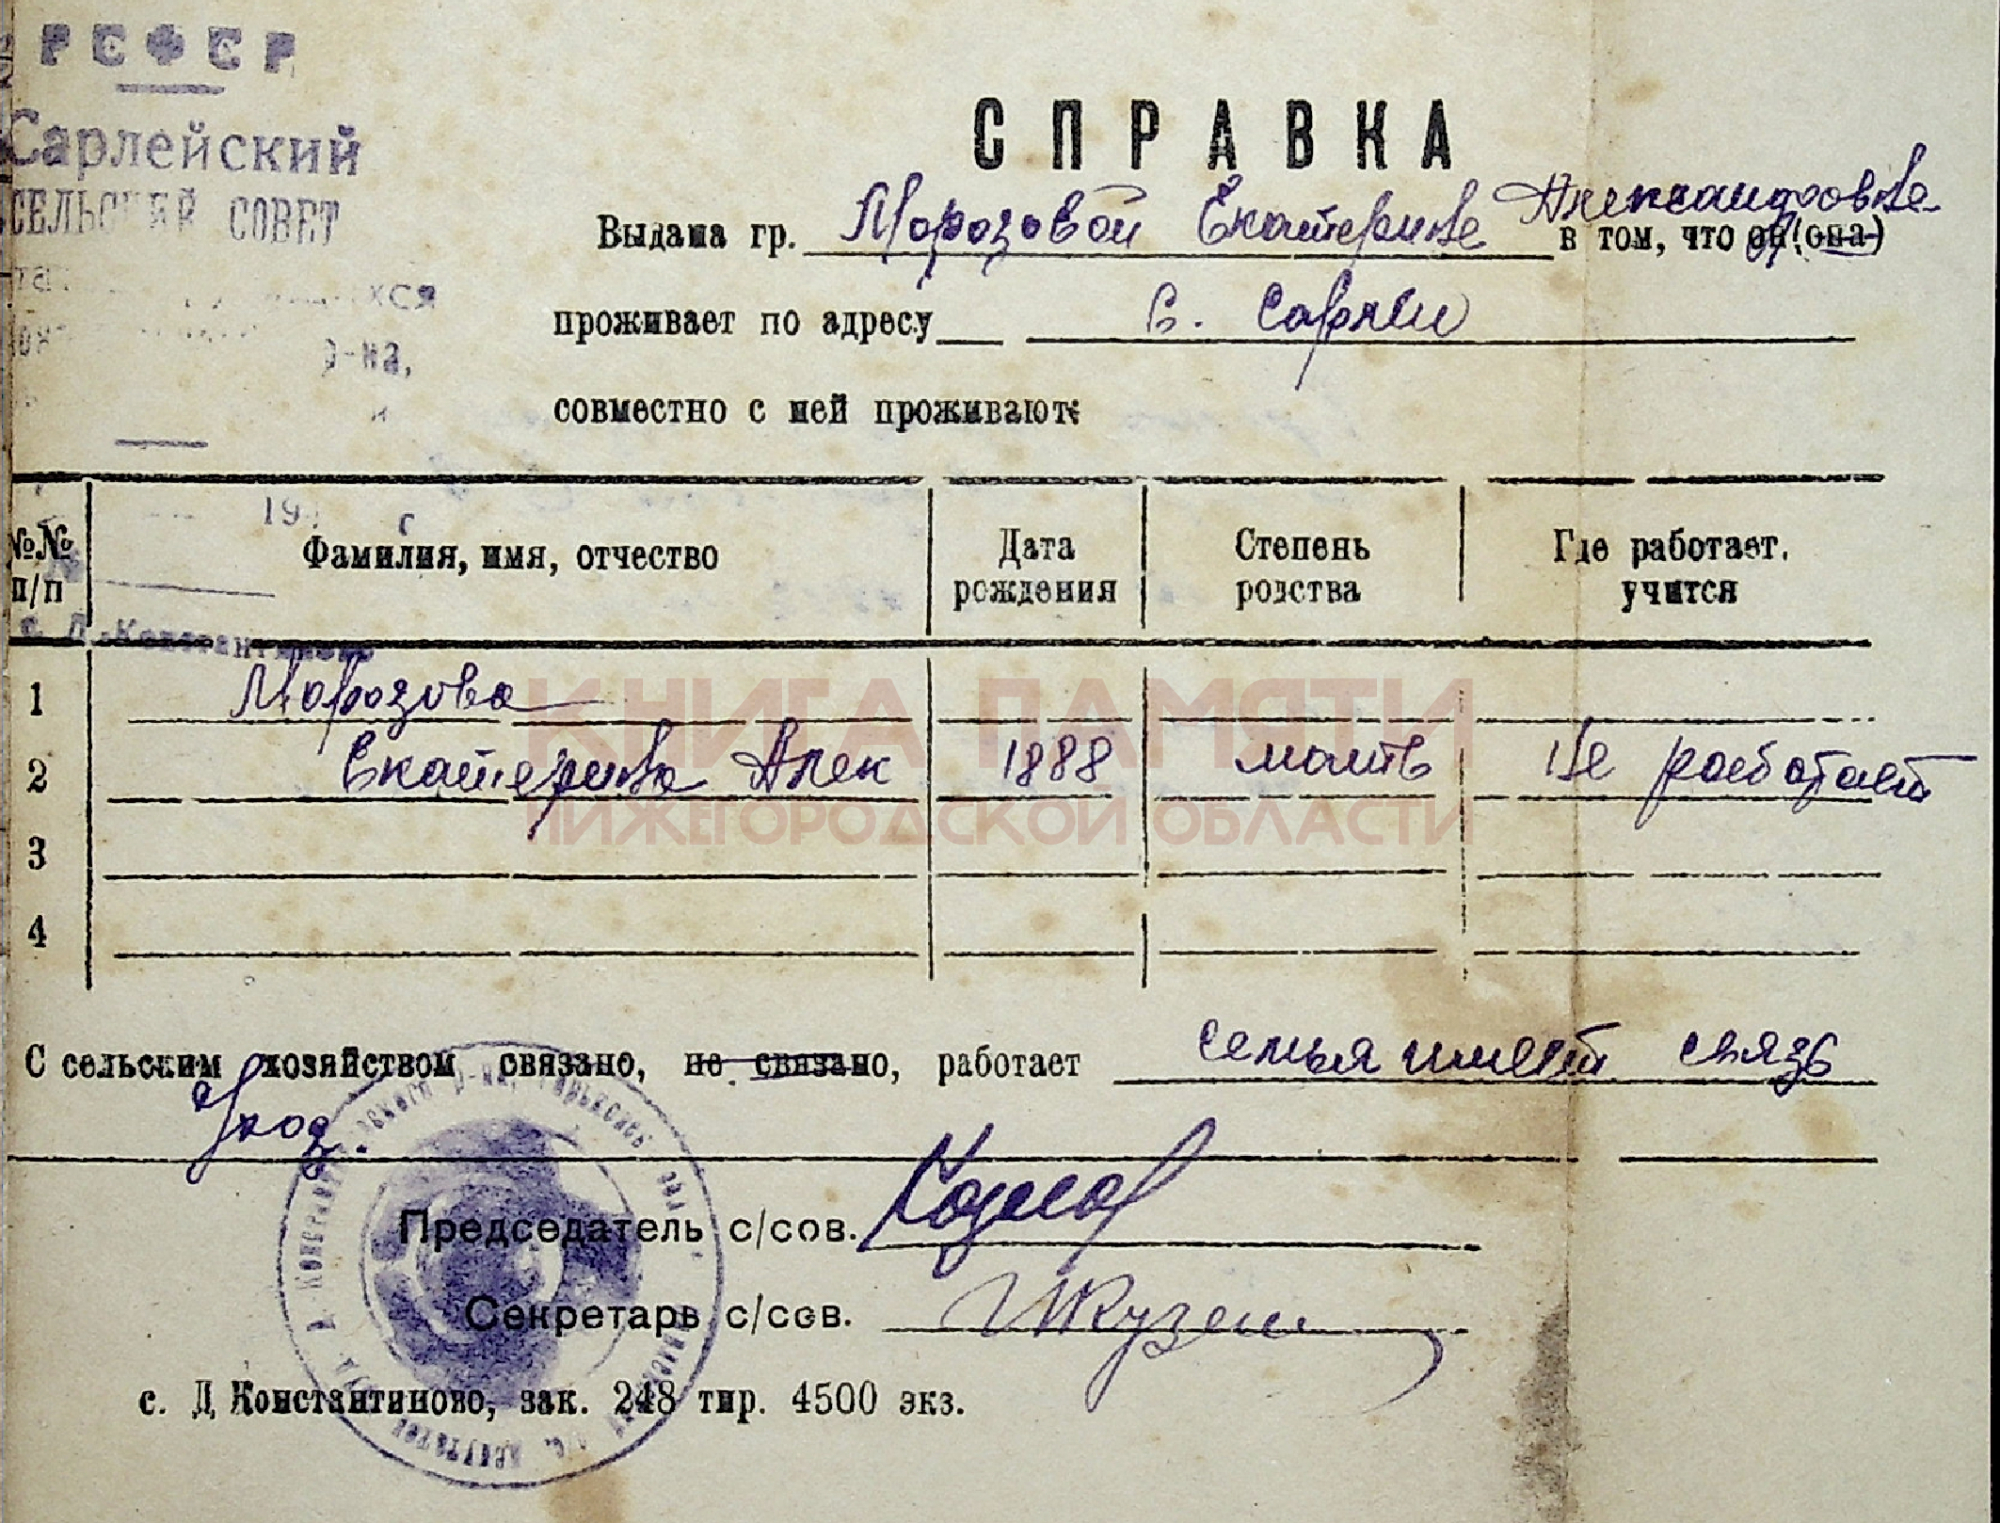 РСФСР
Сарлейский
СЕЛЬСКИЙ СОВЕТ
р-на,
19 г
с. Д.-Константиново
СПРАВКА
Выдана гр. Морозовой Екатерине Александровне в том, что он (она)
проживает по адресу с. Сарлеи
совместно с ней проживают:
№№ п/п Фамилия, имя, отчество Дата рождения Степень родства Где работает. учится
1 Морозова
2 Екатерина Алек 1888 мать Не работает
3
4
КНИГА ПАМЯТИ
НИЖЕГОРОДСКОЙ ОБЛАСТИ
С сельским хозяйством связано, не связано, работает семья имеет связь
Председатель с/сов. Козлов
Секретарь с/сов.
с. Д Константиново, зак. 248 тир. 4500 экз.